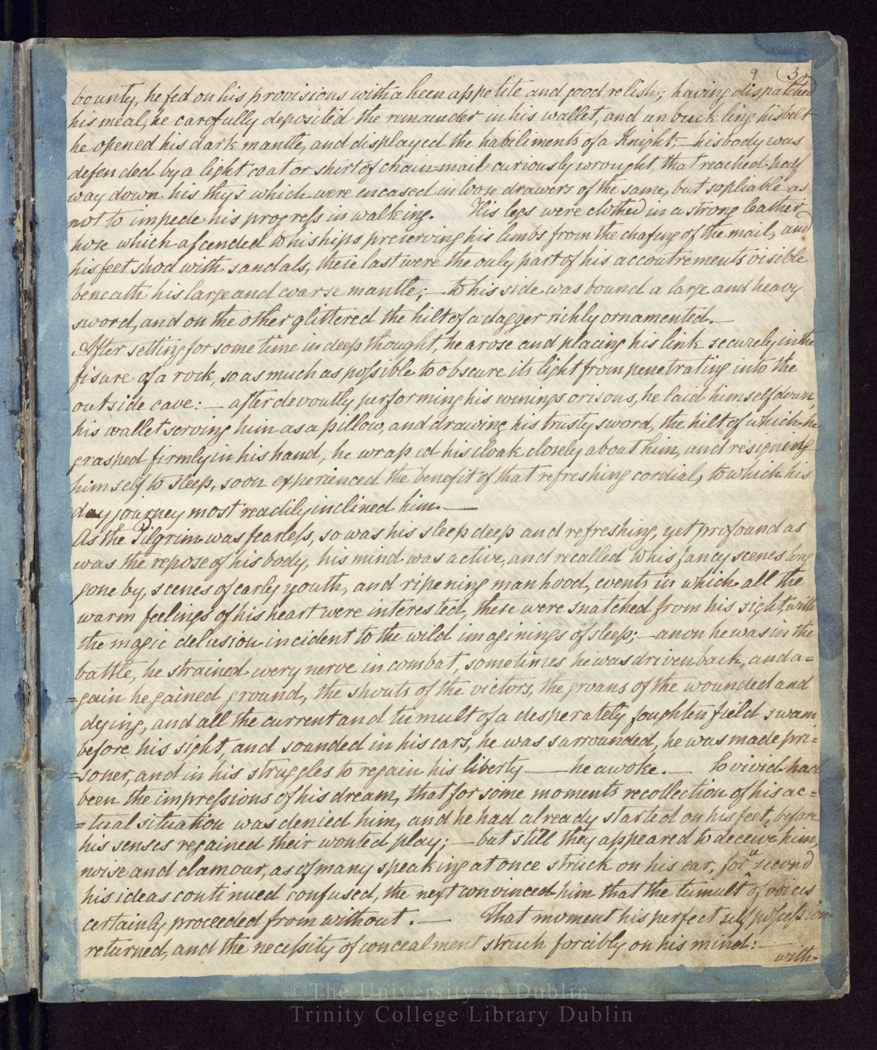 9 3
bounty, he fed on his provisions with a keen appetite and good relish; having dispatched
his meal, he carefully deposited the remainder in his wallet, and unbuckling his belt
he opened his dark mantle, and displayed the habiliments of a Knight, — his body was
defended by a light coat or shirt of chain-mail curiously wrought, that reached half
way down his thys which were encased in loose drawers of the same, but so pliable as
not to impede his progress in walking. His legs were clothed in a strong leather
hose which ascended to his hips, preserving his limbs from the chafing of the mail, and
his feet shod with sandals, these last were the only part of his accoutrements visible
beneath his large and coarse mantle; — to his side was bound a large and heavy
sword, and on the other glittered the hilt of a dagger richly ornamented. —
After setting for some time in deep thought, he arose and placing his link securely in the
fisure of a rock, so as much as possible to obscure its light from penetrating into the
outside cave: — after devoutly performing his evenings orisons, he laid himself down
his wallet serving him as a pillow, and drawing his trusty sword, the hilt of which he
grasped firmly in his hand, he wraped his cloak closely about him, and resigning
himself to sleep, soon experienced the benefit of that refreshing cordial, to which his
day journey most readily inclined him. —
As the Pilgrim was fearless, so was his sleep deep and refreshing, yet profound as
was the repose of his body, his mind was active, and recalled to his fancy scenes long
gone by, scenes of early youth, and ripening manhood, events in which all the
warm feelings of his heart were interested, these were snatched from his sight with
the magic delusion incident to the wild imaginings of sleep; — anon he was in the
battle, he strained every nerve in combat, sometimes he was driven back, and a=
=gain he gained ground, the shouts of the victors, the groans of the wounded and
dying, and all the current and tumult of a desperately foughten field swam
before his sight, and sounded in his ears, he was surrounded, he was made pri=
=soner, and in his struggles to regain his liberty — he awoke. — So vivid had
been the impressions of his dream, that for some moments recollection of his ac=
=tual situation was denied him, and he had already started on his feet, before
his senses regained their wonted play; — but still they appeared to deceive him,
noise and clamour, as of many speaking at once struck on his ear, for a second
his ideas continued confused, the next convinced him that the tumult of voices
certainly proceeded from without. — That moment his perfect self possession
returned, and the necessity of concealment struck forcibly on his mind: —
with-
©The University of Dublin
Trinity College Library Dublin